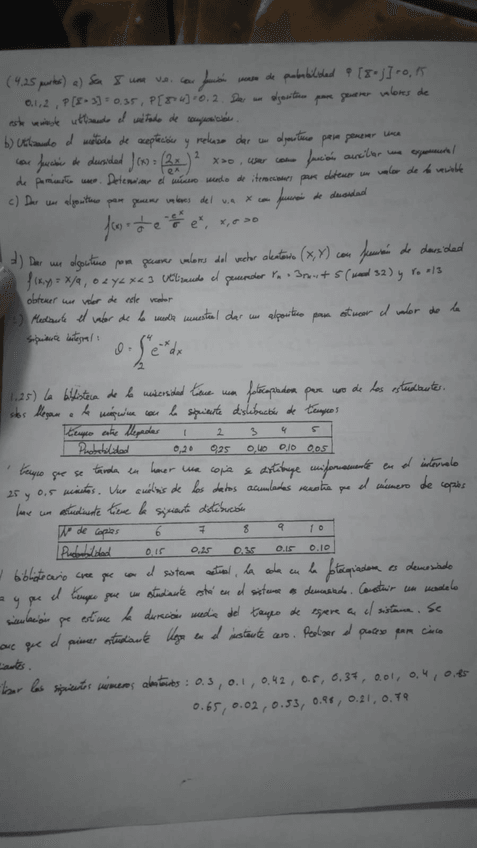 (4.25 puntos) a) Sea X una v.a. con función masa de probabilidad P[X=j]=0,15
0,1,2, P[X=3]=0.35, P[X=4]=0.2. Dar un algoritmo para generar valores de
esta variable utilizando el método de composición.
b) Utilizando el método de aceptación y rechazo dar un algoritmo para generar una
con función de densidad f(x)=(2x/e^x)^2 x>0, usar como función auxiliar una exponencial
de parámetro uno. Determinar el número medio de iteraciones para obtener un valor de la variable
c) Dar un algoritmo para generar valores del v.a. X con función de densidad
f(x)=1/σ e^(-e^x/σ) e^x, x,σ>0
d) Dar un algoritmo para generar valores del vector aleatorio (X,Y) con función de densidad
f(x,y)=x/9, 0<y<x<3 Utilizando el generador rn=3rn-1+5(mod 32) y r0=13
obtener un valor de este vector
Mediante el valor de la media muestral dar un algoritmo para estimar el valor de la
siguiente integral:
θ=∫_2^4 e^-x dx
1.25) La biblioteca de la universidad tiene una fotocopiadora para uso de los estudiantes.
llegan a la máquina con la siguiente distribución de tiempos
tiempo entre llegadas 1 2 3 4 5
Probabilidad 0,20 0,25 0,40 0,10 0,05
tiempo que se tarda en hacer una copia se distribuye uniformemente en el intervalo
25 y 0,5 minutos. Un análisis de los datos acumulados muestra que el número de copias
hace un estudiante tiene la siguiente distribución
Nº de copias 6 7 8 9 10
Probabilidad 0.15 0.25 0.35 0.15 0.10
bibliotecario cree que con el sistema actual, la cola en la fotocopiadora es demasiado
y que el tiempo que un estudiante está en el sistema es demasiado. Construir un modelo
simulación que estime la duración media del tiempo de espera en el sistema. Se
que el primer estudiante llega en el instante cero. Realizar el proceso para cinco
los siguientes números aleatorios: 0.3, 0.1, 0.42, 0.5, 0.37, 0.01, 0.4,
0.65, 0.02, 0.53, 0.98, 0.21, 0.79